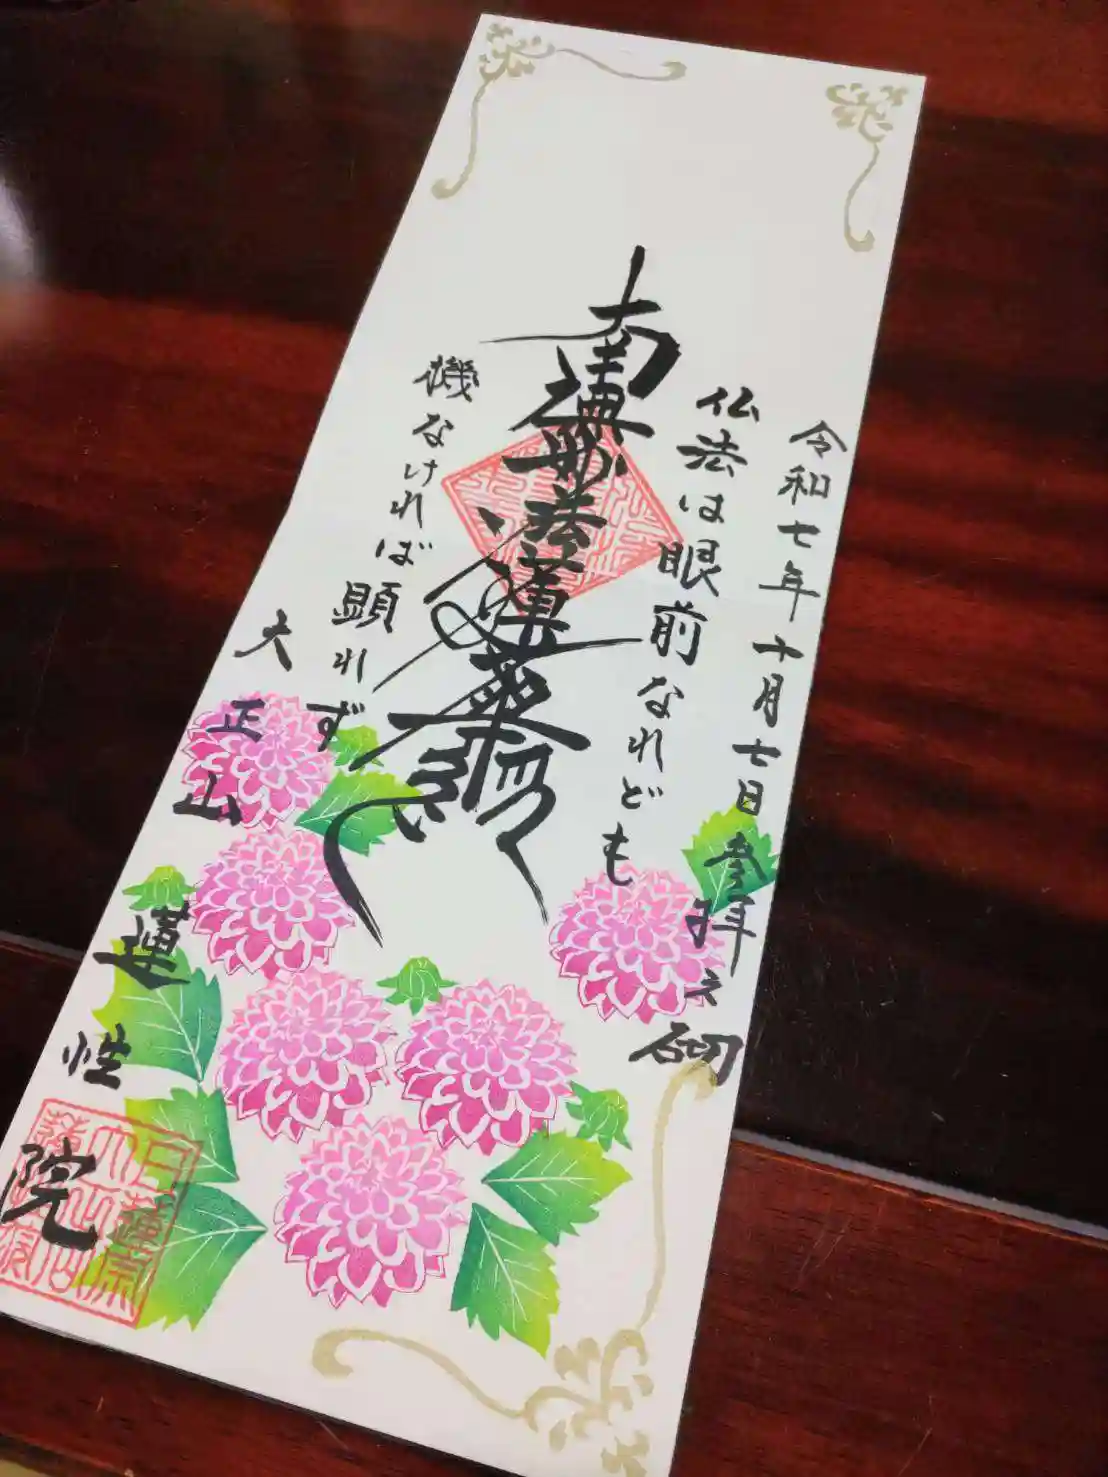 令和七年十月七日参拝之砌
仏法は眼前なれども
南無妙法蓮華経
機なければ顕れず
大正山
蓮性院